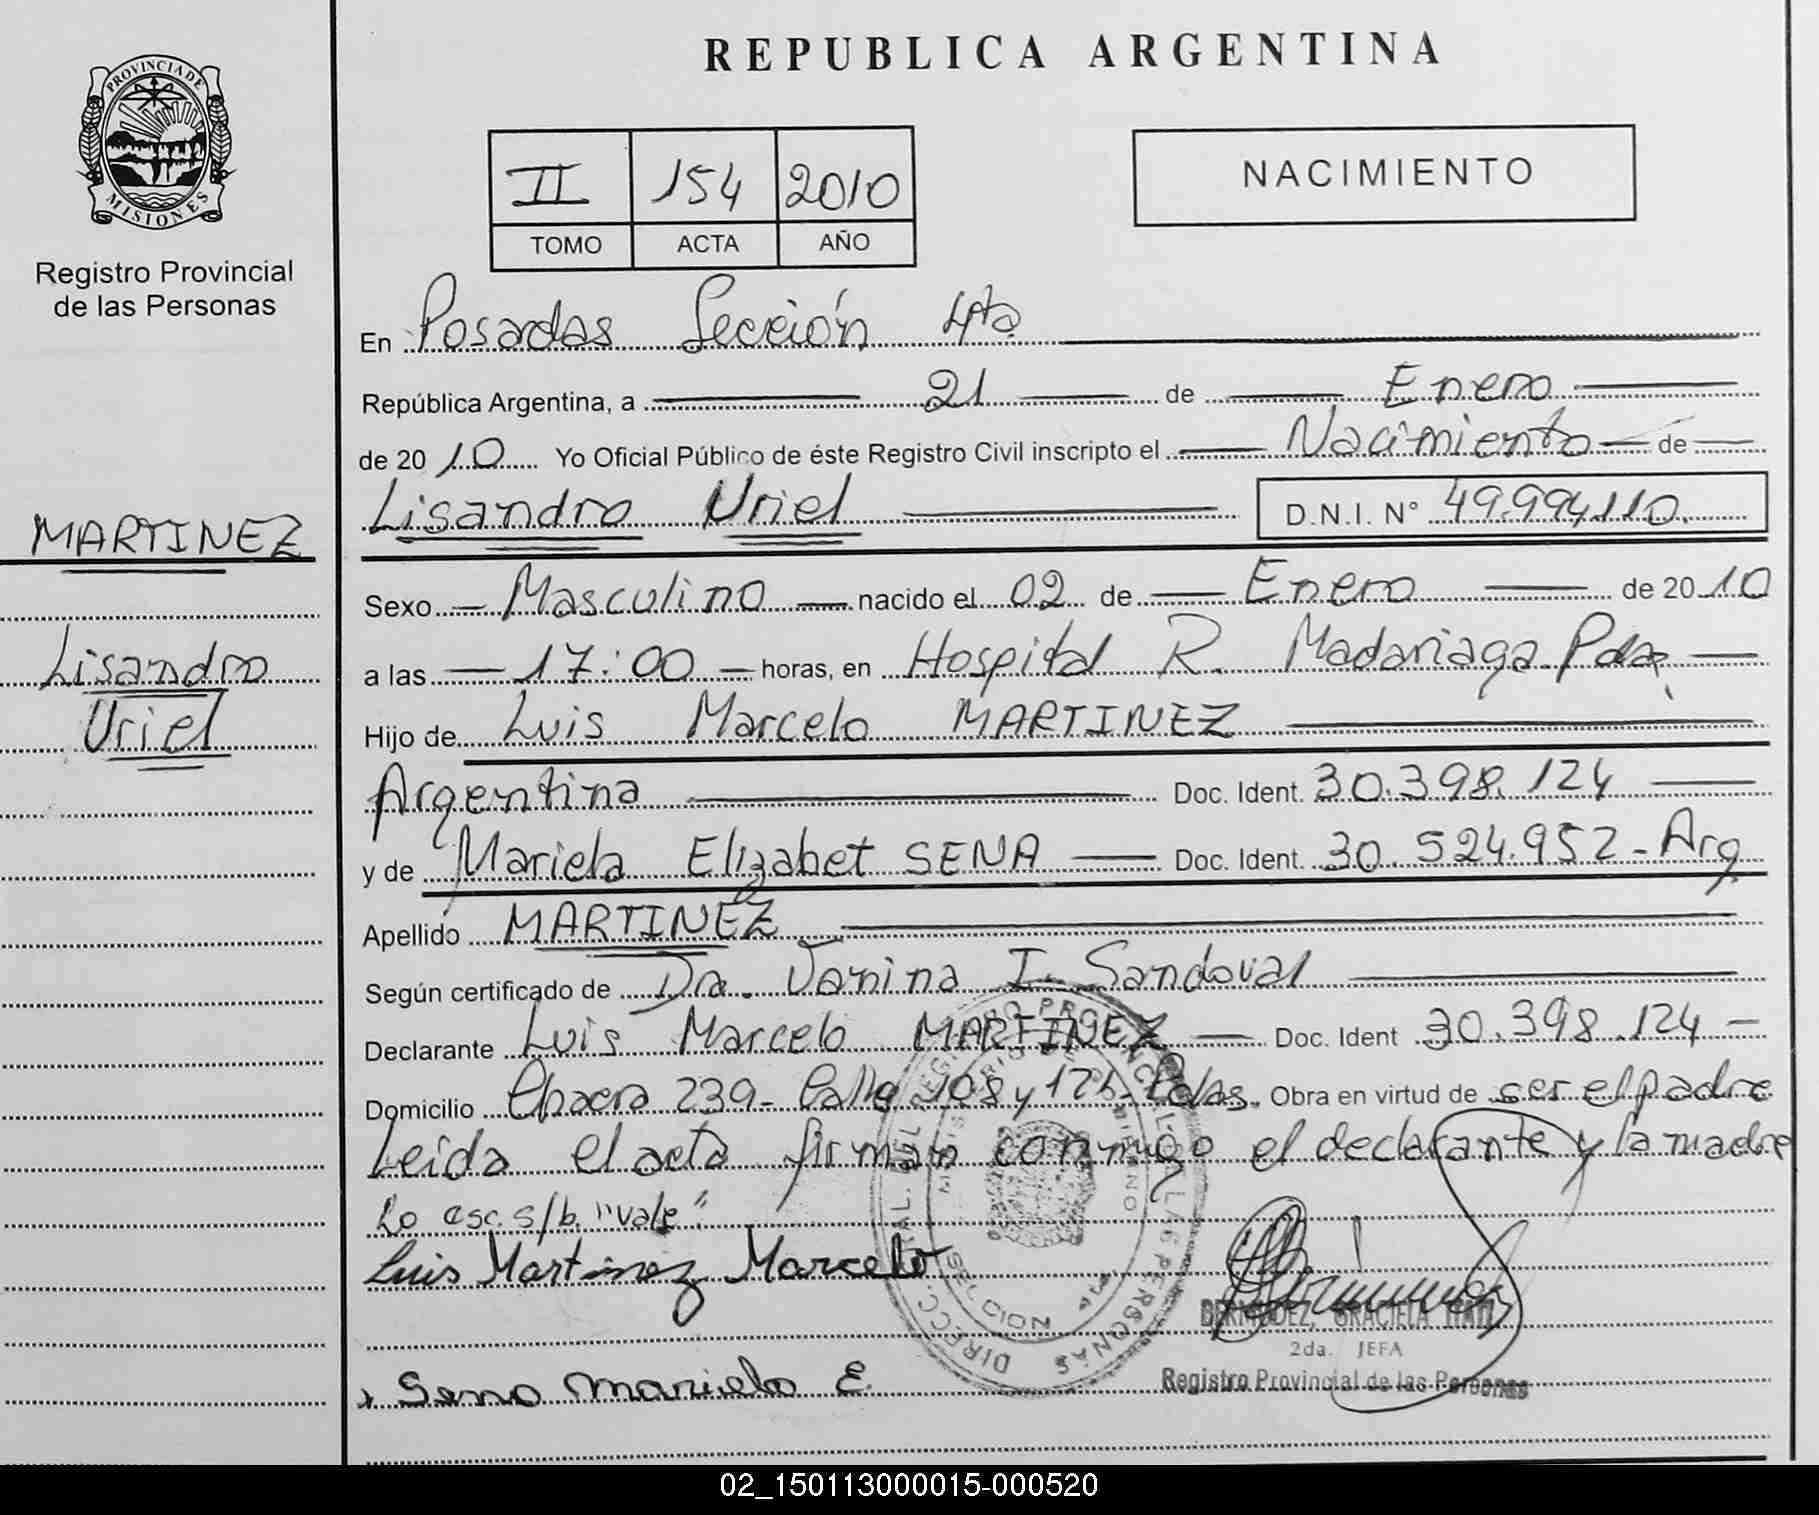 REPUBLICA ARGENTINA
PROVINCIA DE
MISIONES
Registro Provincial
de las Personas
II 154 2010
TOMO ACTA AÑO
NACIMIENTO
En Posadas Sección 4ta
República Argentina, a 21 de Enero
de 2010 Yo Oficial Público de éste Registro Civil inscripto el Nacimiento de
Lisandro Uriel D.N.I. N° 49.994.110.
MARTINEZ
Lisandro
Uriel
Sexo Masculino nacido el 02 de Enero de 2010
a las 17:00 horas, en Hospital R. Madariaga Pdas
Hijo de Luis Marcelo MARTINEZ
Argentina Doc. Ident. 30.398.124
y de Mariela Elizabet SENA Doc. Ident. 30.524.952 - Arg
Apellido MARTINEZ
Según certificado de Dra. Janina I. Sandoval
Declarante Luis Marcelo MARTINEZ Doc. Ident 30.398.124
Domicilio Chacra 239 - Calle 108 y Pdas. Obra en virtud de ser el padre
Leida el acta firman conmigo el declarante y la madre
Lo esc. s/b. "vale"
Luis Martinez Marcelo
Sena Mariela E.
BERMUDEZ, GRACIELA
2da. JEFA
Registro Provincial de las Personas
02_150113000015-000520